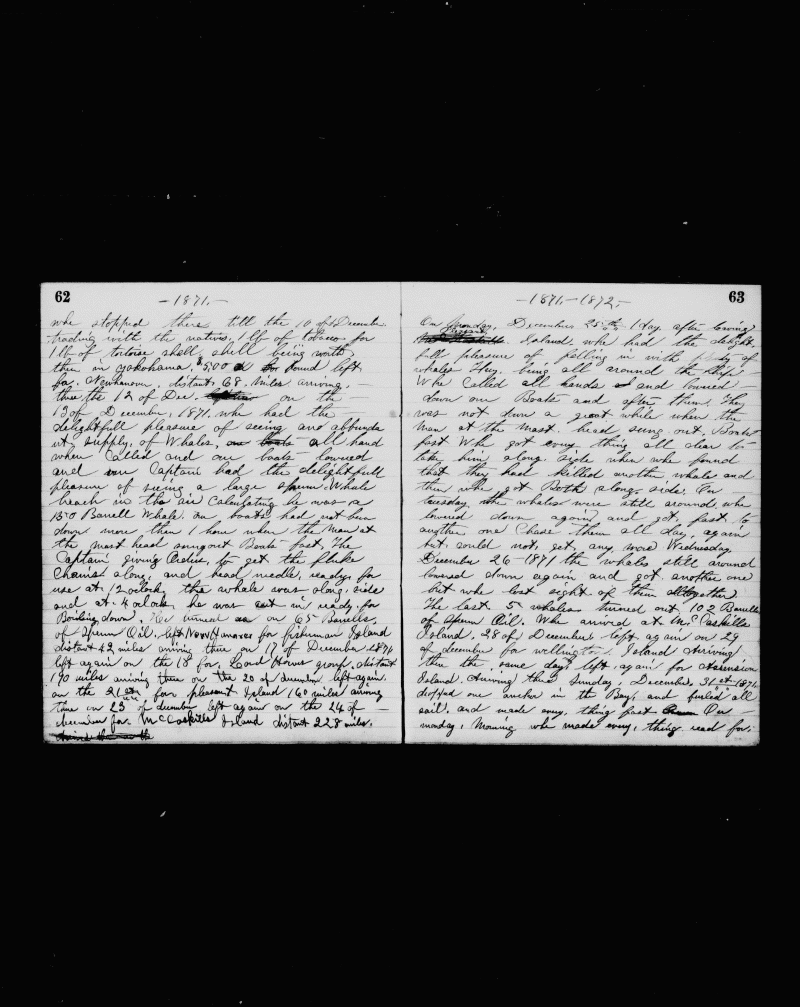 62
-1871.-
whe stopped there till the 10 of December
trading with the natives. 1 lb of tobacco for
1 lb of tortoise shell, shell being worth
then in yokohama. $5.00 a pound left
for. Newhanover distant, 68. Miles arriving.
there the 12 of Dec. on the
13 of December, 1871. whe had the
delightfull pleasure of seeing and abbunda
nt supply, of Whales, all hand
when Called and our boats lowered
and our Captain had the delightfull
pleasure of seeing a large Sperm Whale
breach in the air Calculating he was a
150 Barrell Whale. our boats had not been
down more than 1 hour when the Man at
the mast head sungout Boats fast, The
Captain giving Orders, to get the fluke
Chains along, and head needle, ready, for
use at. 12 oclock, the whale was along, side
and at. 4 oclock, he was cut in ready, for
Boiling down. He turned out 65 Barrells,
of Sperm Oil. left New Hanover for fisherman Island
distant 42 miles arriving there on 17 of December 1871
left again on the 18 for. Lord Howes group, distant
190 miles arriving there on the 20 of december left again.
on the 21st for pleasant Island 160 miles arriving
there on 23 of december left again on the 24 of
december for McCaskills Island distant 228 miles.
63
-1871.-1872.-
On Monday, December 25th, 1 day. after leaving
Pleasant
Island. whe had the delight-
full pleasure of, falling in with of
whales They. being all around the Ship
Whe Called all hands and lowered
down our Boats and after them. They
was not down a great while when the
Man at the Mast. head sung. out, Boats
fast Whe got every thing all clear to
take him along. side when whe found
that they had killed another whale and
then whe got Both along side. On
tuesday, the whales were still around, whe
lowered down again, and got, fast to
another one Chase them all day, again
but, could not, get, any, more Wednesday
December 26 1871 the whales still around
lowered down again and got another one
but whe lost sight of them alltogether
The last. 5 whales turned out, 102 Barrells
of Sperm Oil. Whe arrived at McCaskills
Island. 28 of December. left. again on 29
of december for wellington. Island Arriving
there the, same day, left again for Ascension
Island. Arriving there Sunday, December, 31st 1871
dropped our anchor in the Bay, and furled all
sail. and made every, thing fast On
monday, Morning whe made every, thing read for.